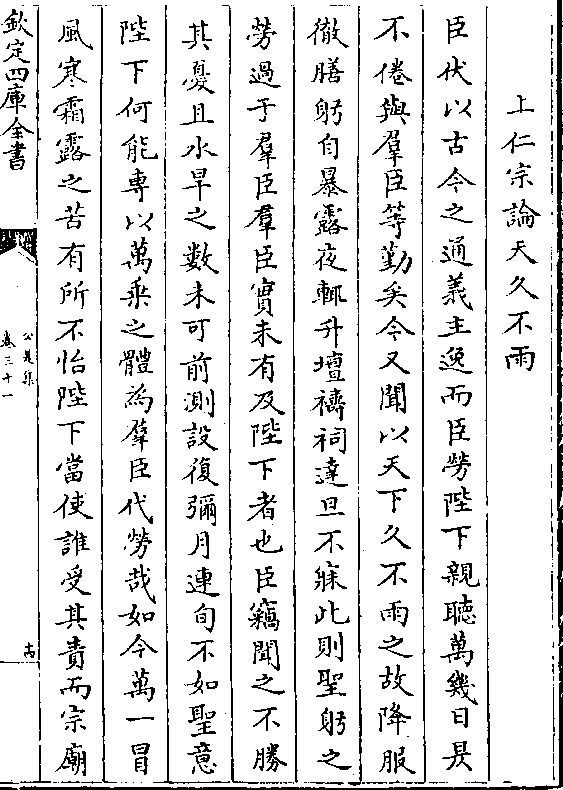 上仁宗論天久不雨
臣伏以古今之通義主逸而臣勞陛下親聽萬幾日昃
不倦與羣臣等勤矣今又聞以天下久不雨之故降服
徹膳躬自暴露夜輒升壇禱祠達旦不寐此則聖躬之
勞過于羣臣羣臣實未有及陛下者也臣竊聞之不勝
其憂且水旱之數未可前測設復彌月連旬不如聖意
陛下何能專以萬乘之體為羣臣代勞哉如今萬一冒
風寒霜露之苦有所不怡陛下當使誰受其責而宗廟
欽定四庫全書
公是集
卷三十一